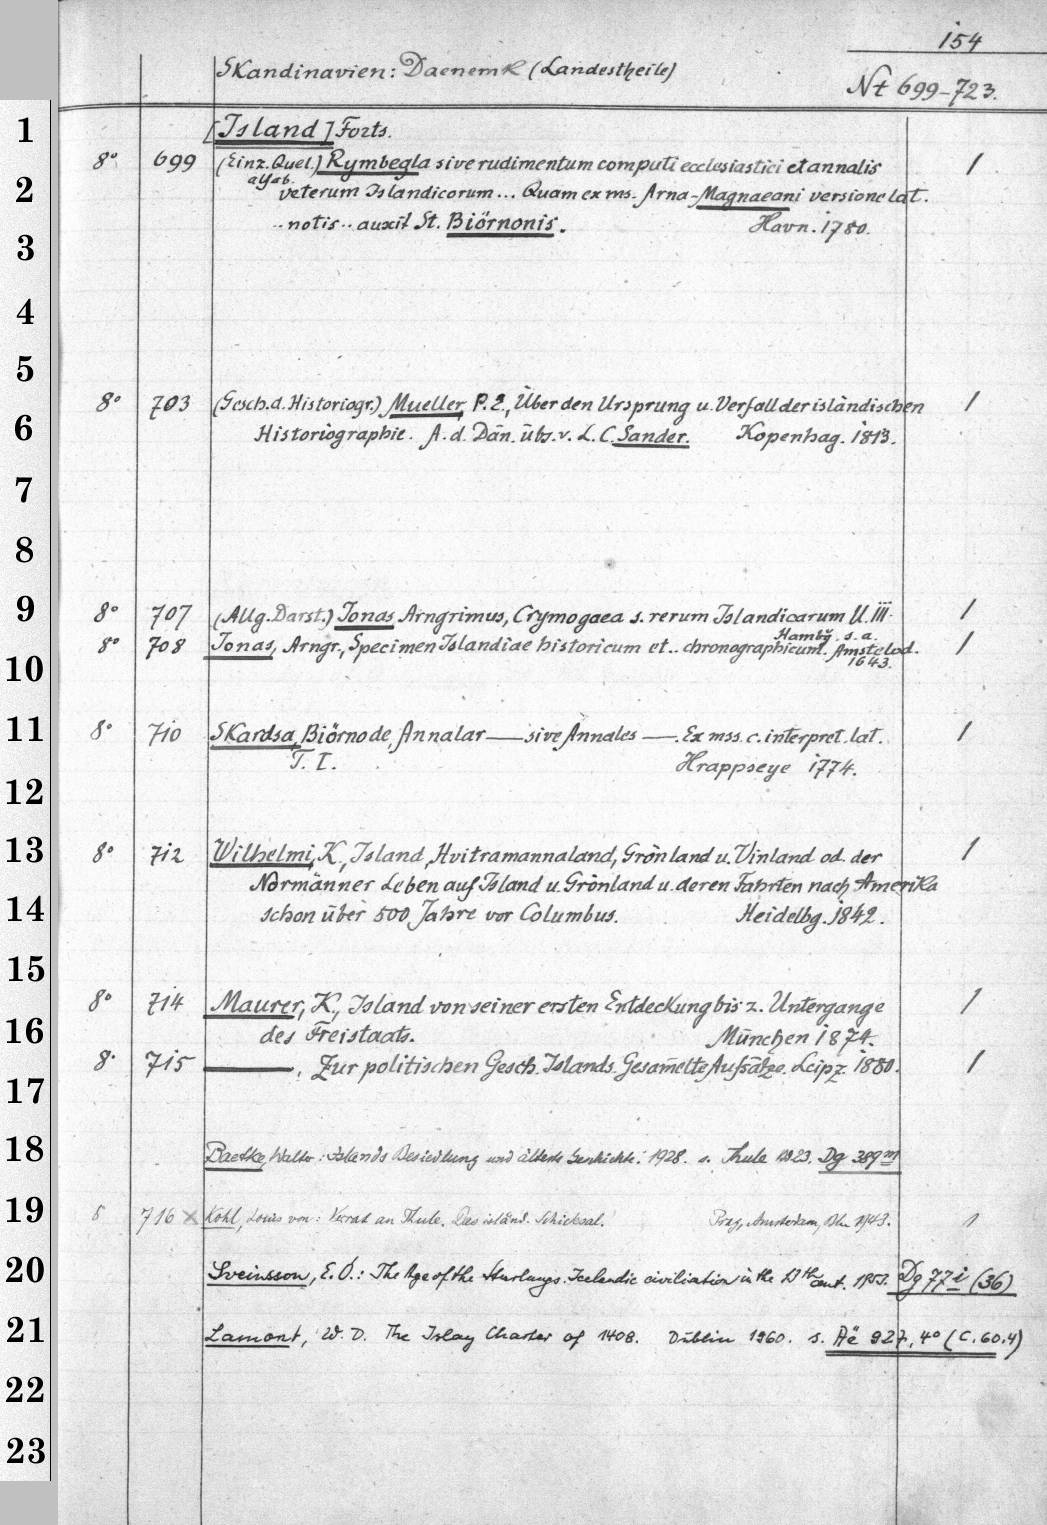 154
Skandinavien: Daenemk (Landestheile)
Nt 699-723.
1
[Island] Forts.
8° 699 (Einz. Quel.) Rymbegla sive rudimentum computi ecclesiastici et annalis 1
2
veterum Islandicorum... Quam ex ms. Arna-Magnaeani versione lat.
.. notis .. auxit St. Biörnonis. Havn. 1780.
3
4
5
8° 703 (Gesch. d. Historiogr.) Mueller, P. E., Über den Ursprung u. Verfall der isländischen 1
6
Historiographie. A. d. Dän. übs. v. L. C. Sander. Kopenhag. 1813.
7
8
9
8° 707 (Allg. Darst.) Jonas Arngrimus, Crymogaea s. rerum Islandicarum ll. III. 1
Hambg. s. a.
8° 708 Jonas, Arngr., Specimen Islandiae historicum et.. chronographicum. Amstelod. 1
1643.
10
11
8° 710 Skardsa, Biörno de, Annalar — sive Annales —. Ex mss. c. interpret. lat. 1
T. I. Hrappseye 1774.
12
13
8° 712 Wilhelmi, K., Island, Hvitramannaland, Grönland u. Vinland od. der 1
Normänner Leben auf Island u. Grönland u. deren Fahrten nach Amerika
14
schon über 500 Jahre vor Columbus. Heidelbg. 1842.
15
8° 714 Maurer, K., Island von seiner ersten Entdeckung bis z. Untergange 1
16
des Freistaats. München 1874.
8° 715 —, Zur politischen Gesch. Islands. Gesam̄elte Aufsätze. Leipz. 1880. 1
17
18
Baetke, Walter: Islands Besiedlung und älteste Geschichte. 1928. s. Thule Bd 23. Dg 389m
19
8 716 x Kohl, Louis von: Verrat an Thule. Das isländ. Schicksal. Prag, Amsterdam, 1943. 1
20
Sveinsson, E. Ó.: The Age of the Sturlungs. Icelandic civilization in the 13th cent. 1953. Dg 77i (36)
21
Lamont, W. D. The Islay Charter of 1408. Dublin 1960. s. Aë 927, 4° (C. 60. 4)
22
23